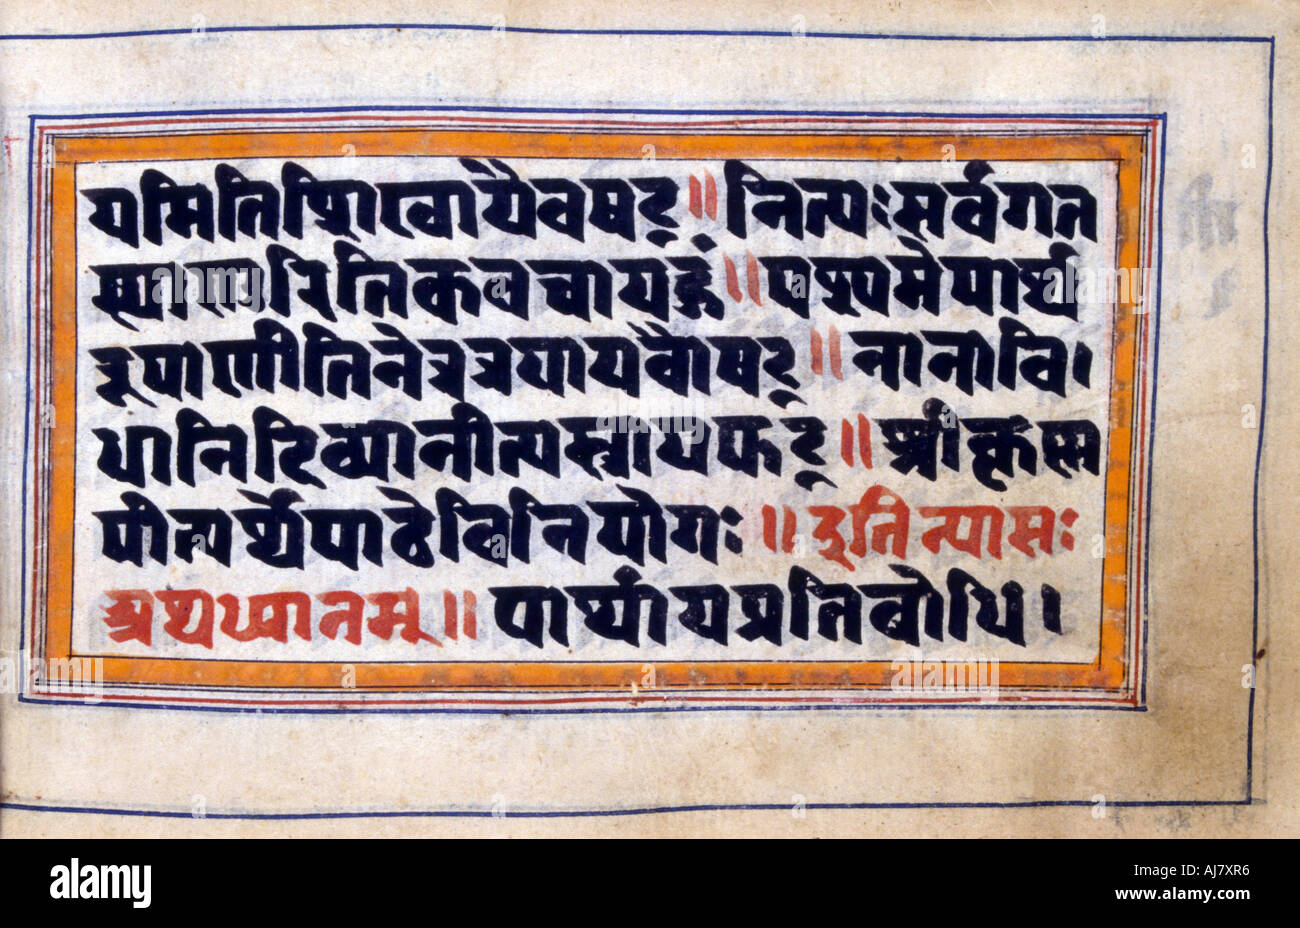 यमितिशिखायैवषट्॥नित्यःसर्वगत
स्थाणुरितिकवचायहुं॥पश्यमेपार्थ
रूपाणीतिनेत्रत्रयायवौषट्॥नानावि।
धानिदिव्यानीत्यस्त्रायफट्॥श्रीकृष्ण
प्रीत्यर्थेपाठेविनियोगः॥इतिन्यासः
अथध्यानम्॥पार्थायप्रतिबोधि।
alamy
Image ID: AJ7XR6
www.alamy.com